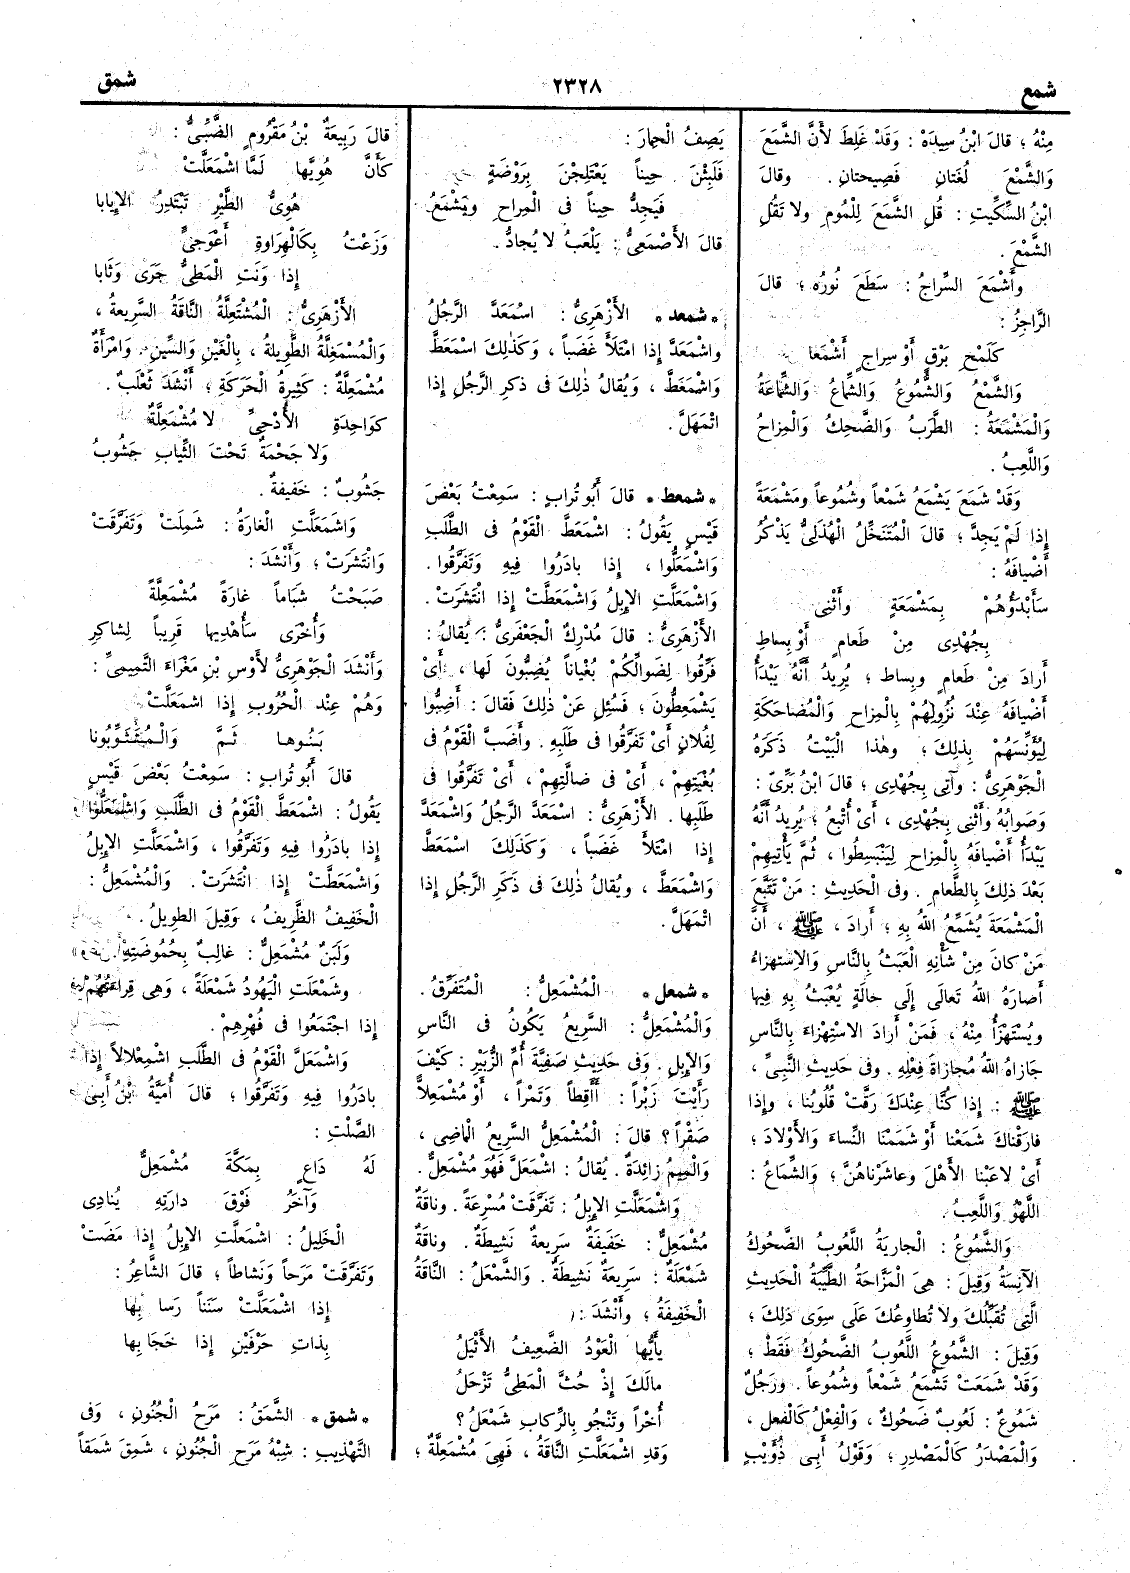 شمع
٢٣٢٨
شمق
مِنْهُ ؛ قالَ ابْنُ سِيدَهْ : وَقَدْ غَلِطَ لأَنَّ الشَّمَعَ
وَالشَّمْعَ لُغَتانِ فَصِيحتانِ . وقالَ
ابْنُ السِّكِّيتِ : قُلِ الشَّمَعَ لِلْمُومِ ولا تَقُلِ
الشَّمْعَ .
وأَشْمَعَ السِّراجُ : سَطَعَ نُورُه ؛ قالَ
الرَّاجِزُ :
كَلَمْحِ بَرْقٍ أَوْ سِراجٍ أَشْمَعَا
وَالشَّمْعُ وَالشُّمُوعُ وَالشِّماعُ وَالشِّماعَةُ
وَالْمَشْمَعَةُ : الطَّرَبُ وَالضَّحِكُ وَالْمِزاحُ
وَاللَّعِبُ .
وَقَدْ شَمَعَ يَشْمَعُ شَمْعاً وشُمُوعاً ومَشْمَعَةً
إِذا لَمْ يَجِدَّ ؛ قالَ الْمُتَنَخِّلُ الْهُذَلِىُّ يَذْكُرُ
أَضْيافَهُ :
سَأَبْدَؤُهُمْ بِمَشْمَعَةٍ وأَثْنِى
بِجُهْدِى مِنْ طَعامٍ أَوْ بِساطِ
أَرادَ مِنْ طَعامٍ وبِساط ؛ يُرِيدُ أَنَّهُ يَبْدَأُ
أَضْيافَهُ عِنْدَ نُزُولِهُمْ بِالْمِزاحِ وَالْمُضاحَكَةِ
لِيُؤَنِّسَهُمْ بِذلِكَ ؛ وهٰذا الْبَيْتُ ذَكَرَهُ
الْجَوْهَرِىُّ : وآتِى بِجُهْدِى ؛ قالَ ابْنُ بَرِّىّ :
وَصَوابُهُ وأَثْنِى بِجُهْدِى ، أَىْ أُتْبِعُ ؛ يُرِيدُ أَنَّهُ
يَبْدَأُ أَضْيافَهُ بِالْمِزاحِ لِيَنْبَسِطُوا ، ثُمَّ يَأْتِيهِمْ
بَعْدَ ذلِكَ بِالطَّعامِ . وفِى الْحَدِيثِ : مَنْ تَتَبَّعَ
الْمَشْمَعَةَ يُشَمِّعُ اللهُ بِهِ ؛ أَرادَ ، ﷺ ، أَنَّ
مَنْ كانَ مِنْ شَأْنِهِ الْعَبَثُ بِالنَّاسِ وَالاِسْتِهْزاءُ
أَصارَهُ اللهُ تَعالَى إِلَى حالَةٍ يُعْبَثُ بِهِ فِيها
ويُسْتَهْزَأُ مِنْهُ ؛ فَمَنْ أَرادَ الاسْتِهْزاءَ بِالنَّاسِ
جازاهُ اللهُ مُجازاةَ فِعْلِهِ . وفى حَدِيثِ النَّبِىِّ ،
ﷺ : إِذا كُنَّا عِنْدَكَ رَقَّتْ قُلُوبُنا ، وإِذا
فارَقْناكَ شَمَعْنا أَوْ شَمَمْنا النِّساءَ وَالأَوْلادَ ؛
أَىْ لاعَبْنا الأَهْلَ وعاشَرْناهُنَّ ؛ وَالشِّماعُ :
اللَّهْوُ وَاللَّعِبُ .
وَالشَّمُوعُ : الْجارِيَةُ اللَّعُوبُ الضَّحُوكُ
الآنِسَةُ وَقِيلَ : هِىَ الْمَزَّاحَةُ الطَّيِّبَةُ الْحَدِيثِ
الَّتِى تُقَبِّلُكَ ولا تُطاوِعُكَ عَلَى سِوَى ذلِكَ ؛
وَقِيلَ : الشَّمُوعُ اللَّعُوبُ الضَّحُوكُ فَقَطْ ؛
وَقَدْ شَمَعَتْ تَشْمَعُ شَمْعاً وشُمُوعاً . ورَجُلٌ
شَمُوعٌ : لَعُوبٌ ضَحُوكٌ ، وَالْفِعْلُ كَالْفِعلِ ،
وَالْمَصْدَرُ كَالْمَصْدَرِ ؛ وَقَوْلُ أَبِى ذُؤَيْبٍ
يَصِفُ الْحِمارَ :
فَلَبِثْنَ حِيناً يَعْتَلِجْنَ بِرَوْضَةٍ
فَيَجِدُّ حِيناً فى الْمِراحِ ويَشْمَعُ
قالَ الأَصْمَعِىُّ : يَلْعَبُ لا يُجادُّ .
* شمعد * الأَزْهَرِىُّ : اسْمَعَدَّ الرَّجُلُ
واشْمَعَدَّ إِذا امْتَلأَ غَضَباً ، وَكَذٰلِكَ اسْمَعَطَّ
وَاشْمَعَطَّ ، وَيُقالُ ذٰلِكَ فى ذكَرِ الرَّجُلِ إِذا
اتْمَهَلَّ .
* شمعط * قالَ أَبُو تُرابٍ : سَمِعْتُ بَعْضَ
قَيْسٍ يَقُولُ : اشْمَعَطَّ الْقَوْمُ فى الطَّلَبِ
وَاشْمَعَلُّوا ، إِذا بادَرُوا فِيهِ وَتَفَرَّقُوا .
وَاشْمَعَلَّتِ الإِبِلُ وَاشْمَعَطَّتْ إِذا انْتَشَرَتْ .
الأَزْهَرِىُّ : قالَ مُدْرِكٌ الْجَعْفَرِىُّ : يُقالُ :
فَرِّقُوا لِضَوالِّكُمْ بُغْياناً يُضِبُّونَ لَها ، أَىْ
يَشْمَعِطُّونَ ؛ فَسُئِلَ عَنْ ذٰلِكَ فَقالَ : أَضِبُّوا
لِفُلانٍ أَىْ تَفَرَّقُوا فى طَلَبِهِ . وأَضَبَّ الْقَوْمُ فى
بُغْيَتِهِمْ ، أَىْ فى ضالَّتِهِمْ ، أَىْ تَفَرَّقُوا فى
طَلَبِها . الأَزْهَرِىُّ : اسْمَعَدَّ الرَّجُلُ وَاشْمَعَدَّ
إِذا امْتَلأَ غَضَباً ، وَكَذَلِكَ اسْمَعَطَّ
وَاشْمَعَطَّ ، ويُقالُ ذٰلِكَ فى ذَكَرِ الرَّجُلِ إِذا
اتْمَهَلَّ .
* شمعل * الْمُشْمَعِلُّ : الْمُتَفَرِّقُ .
وَالْمُشْمَعِلُّ : السَّرِيعُ يَكُونُ فى النَّاسِ
وَالإِبِلِ . وَفى حَدِيثِ صَفِيَّةَ أُمِّ الزُّبَيْرِ : كَيْفَ
رَأَيْتَ زَبْراً : أَأَقِطاً وَتَمْراً ، أَوْ مُشْمَعِلاًّ
صَقْراً ؟ قالَ : الْمُشْمَعِلُّ السَّرِيعُ الْماضِى ،
وَالْمِيمُ زائِدَةٌ . يُقالُ : اشْمَعَلَّ فَهُوَ مُشْمَعِلٌّ .
وَاشْمَعَلَّتِ الإِبِلُ : تَفَرَّقَتْ مُسْرِعَةً . وناقَةٌ
مُشْمَعِلٌّ : خَفِيفَةٌ سَرِيعةٌ نَشِيطَةٌ . وناقَةٌ
شَمْعَلَةٌ : سَرِيعَةٌ نَشِيطَةٌ . وَالشَّمْعَلُ : النَّاقَةُ
الْخَفِيفَةُ ؛ وأَنْشَدَ :
يأَيُّها الْعَوْدُ الضَّعِيفُ الأَثْيَلُ
مالَكَ إِذْ حُثَّ الْمَطِىُّ تَزْحَلُ
أُخْراً وتَنْجُو بِالرِّكابِ شَمْعَلُ ؟
وَقَدِ اشْمَعَلَّتِ النَّاقَةُ ، فَهِىَ مُشْمَعِلَّةٌ ؛
قالَ رَبِيعَةُ بْنُ مَقْرُومٍ الضَّبِّىُّ :
كَأَنَّ هُوِيَّها لَمَّا اشْمَعَلَّتْ
هُوِىُّ الطَّيْرِ تَبْتَدِرُ الإِيابا
وَزَعْتُ بِكَالْهِراوةِ أَعْوَجِىٍّ
إِذا وَنَتِ الْمَطِىُّ جَرَى وَثَابا
الأَزْهَرِىُّ : الْمُشْتَعِلَّةُ النَّاقَةُ السَّرِيعةُ ،
وَالْمُسْمَغِلَّةُ الطَّوِيلةُ ، بِالْغَيْنِ وَالسِّينِ . وَامْرَأَةٌ
مُشْمَعِلَّةٌ : كَثِيرَةُ الْحَرَكَةِ ؛ أَنْشَدَ ثَعْلَبٌ .
كَواحِدَةِ الأُدْحِىِّ لا مُشْمَعِلَّةٌ
وَلا جَحْمَةٌ تَحْتَ الثِّيابِ جَشُوبُ
جَشُوبٌ : خَفِيفةٌ .
وَاشْمَعَلَّتِ الْغارَةُ : شَمِلَتْ وَتَفَرَّقَتْ
وَانْتَشَرَتْ ؛ وأَنْشَدَ :
صَبَحْتُ شَبَاماً غارَةً مُشْمَعِلَّةً
وَأُخْرَى سَأُهْدِيها قَرِيباً لِشاكِرِ
وَأَنْشَدَ الْجَوْهَرِىُّ لأَوْسِ بْنِ مَغْرَاءَ التَّمِيمِىِّ :
وَهُمْ عِنْدَ الْحُرُوبِ إِذا اشمَعَلَّتْ
بَنُوها ثَمَّ وَالْمُتَثَوِّبُونا
قالَ أَبُو تُرابٍ : سَمِعْتُ بَعْضَ قَيْسٍ
يَقُولُ : اشْمَعَطَّ الْقَوْمُ فى الطَّلَبِ وَاشْمَعَلُّوا
إِذا بادَرُوا فِيهِ وَتَفَرَّقُوا ، وَاشْمَعَلَّتِ الإِبِلُ
وَاشْمَعَطَّتْ إِذا انْتَشَرَتْ . وَالْمُشْمَعِلُّ :
الْخَفِيفُ الظَّرِيفُ ، وَقِيلَ الطوِيلُ .
وَلَبَنٌ مُشْمَعِلٌّ : غالِبٌ بِحُمُوضَتِهِ .
وشَمْعَلَتِ الْيَهُودُ شَمْعَلَةً ، وَهِى قِراءَتُهُمْ
إِذا اجْتَمَعُوا فى فُهْرِهِمْ .
وَاشْمَعَلَّ الْقَوْمُ فى الطَّلَبِ اشْمِعْلالاً إِذا
بادَرُوا فِيهِ وَتَفَرَّقُوا ؛ قالَ أُمَيَّةُ بْنُ أَبِى
الصَّلْتِ :
لَهُ دَاعٍ بِمَكَّةَ مُشْمَعِلٌّ
وَآخَرُ فَوْقَ دارَتِهِ يُنادِى
الْخَلِيلُ : اشْمَعَلَّتِ الإِبِلُ إِذا مَضَتْ
وَتَفَرَّقَتْ مَرَحاً وَنَشاطاً ؛ قالَ الشَّاعِرُ :
إِذا اشْمَعَلَّتْ سَنَناً رَسا بِها
بِذاتِ حَرْفَيْنِ إِذا حَجَا بِها
* شمق * الشَّمَقُ : مَرَحُ الْجُنُونِ ، وَفى
التَّهْذِيبِ : شِبْهُ مَرَحِ الْجُنُونِ ، شَمِقَ شَمَقاً